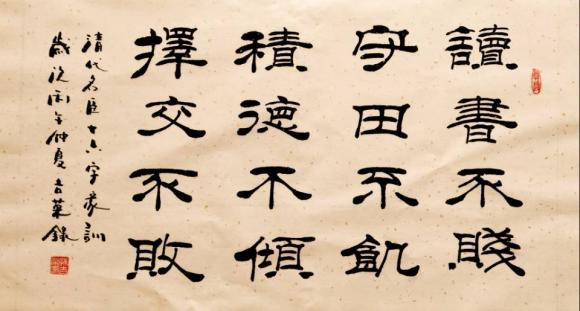 讀書不賤
守田不飢
積德不傾
擇交不敗
清代名臣十六字家訓
歲次午仲夏葉錄